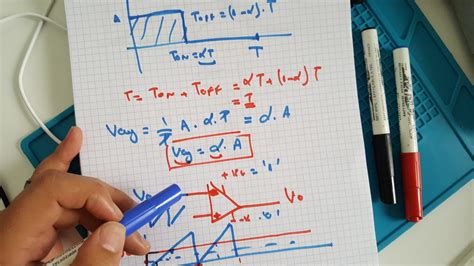 A
Toff = (1-α).T
Ton = αT
T
T = Ton + Toff = αT + (1-α)T
= T
Vavg = 1/T A.α.T = α.A
Vavg = α.A
+Vcc = '1'
Vo
'0'